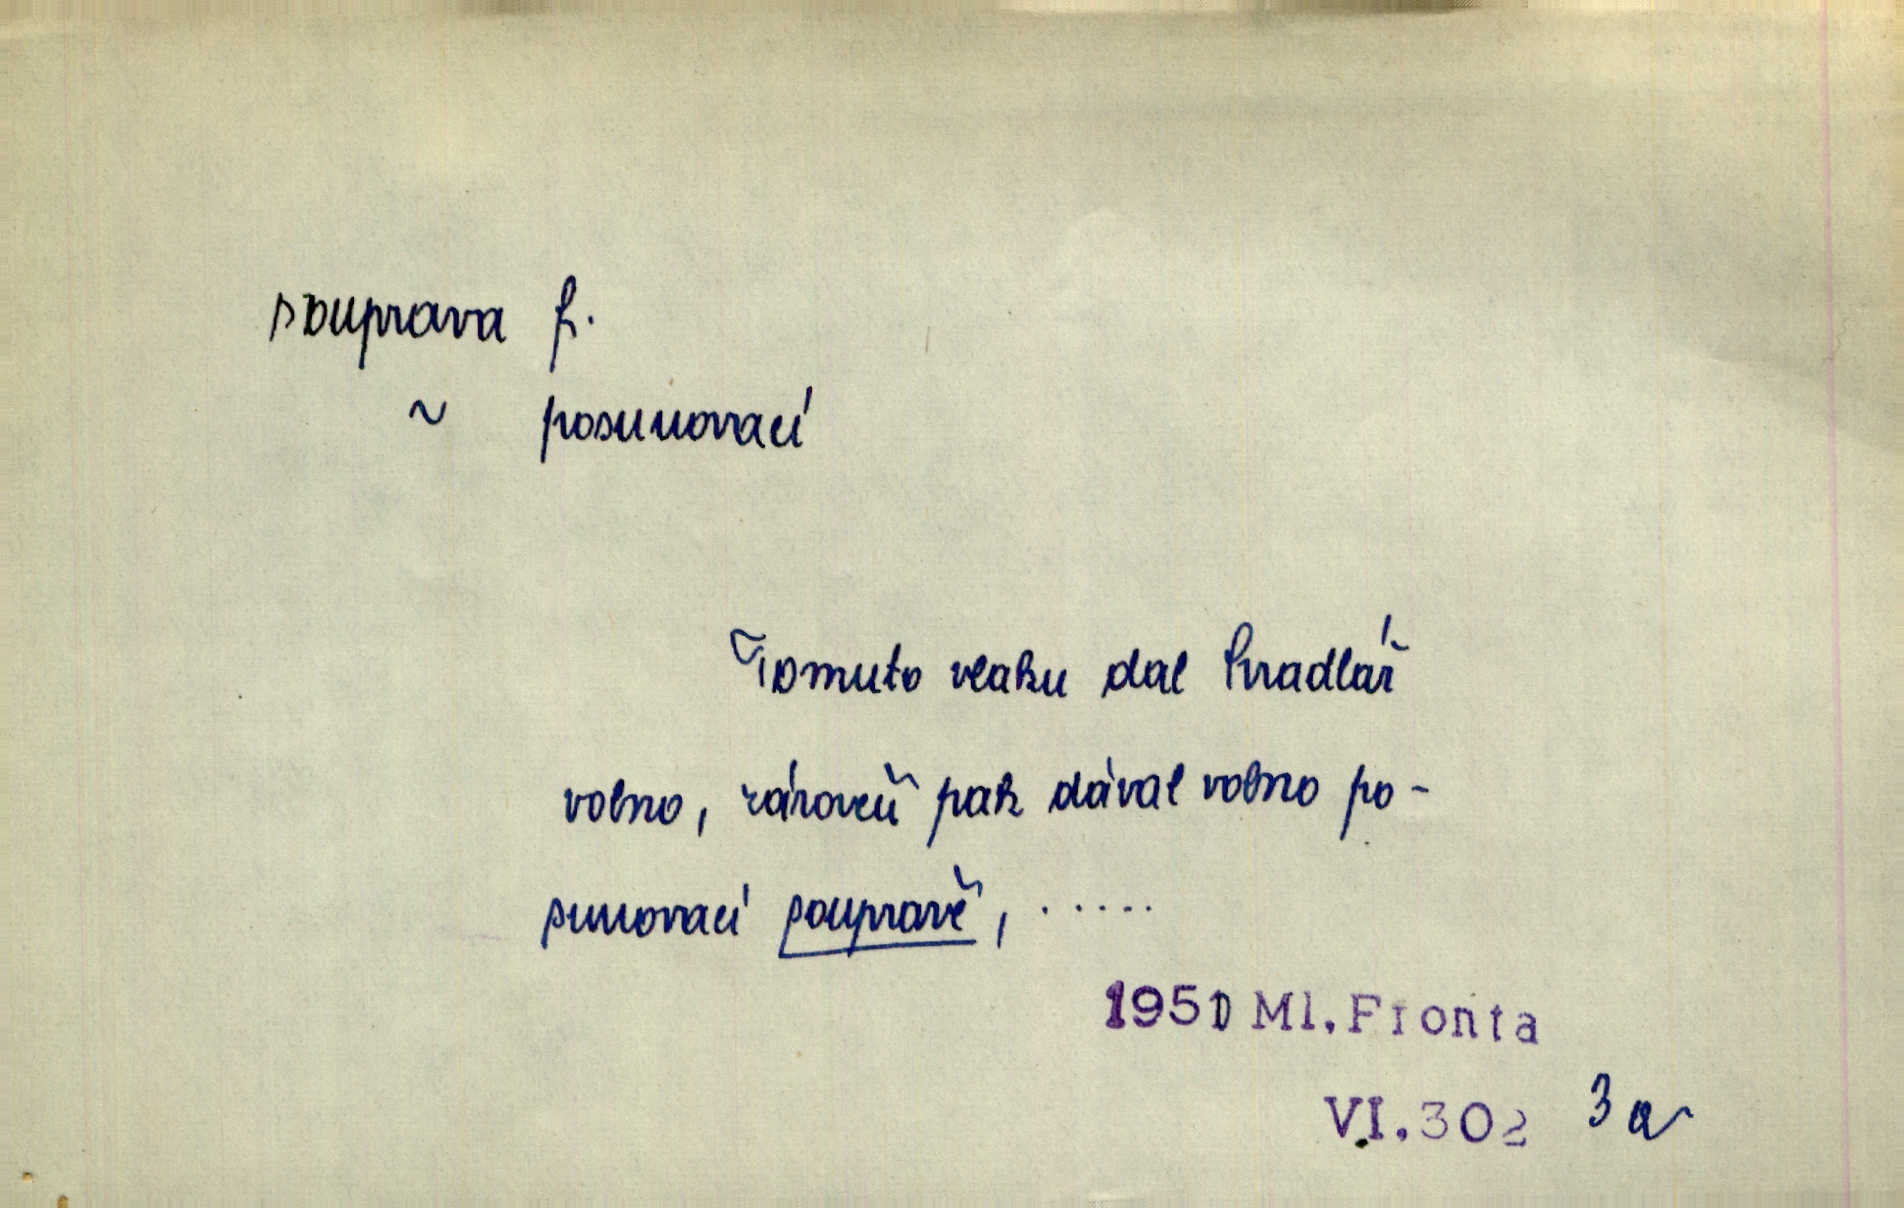 souprava f.
~ posunovací
Tomuto vlaku dal hradlář
volno, zároveň pak dával volno po-
sunovací soupravě, .....
1950 Ml. Fronta
VI. 302 3a